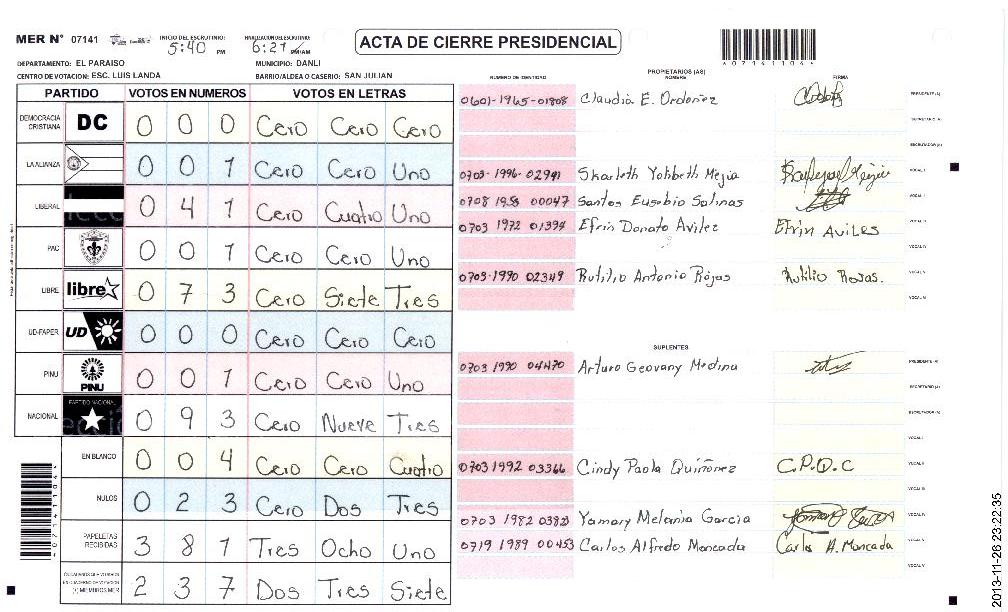 MER N° 07141
INICIO DEL ESCRUTINIO: 5:40 PM
FINALIZACION DEL ESCRUTINIO: 6:27 PM/AM
ACTA DE CIERRE PRESIDENCIAL
DEPARTAMENTO: EL PARAISO
MUNICIPIO: DANLI
CENTRO DE VOTACION: ESC. LUIS LANDA
BARRIO/ALDEA O CASERIO: SAN JULIAN
PARTIDO VOTOS EN NUMEROS VOTOS EN LETRAS
DEMOCRACIA CRISTIANA DC 0 0 0 Cero Cero Cero
LA ALIANZA 0 0 1 Cero Cero Uno
LIBERAL 0 4 1 Cero Cuatro Uno
PAC 0 0 1 Cero Cero Uno
LIBRE libre 0 7 3 Cero Siete Tres
UD-FAPER UD 0 0 0 Cero Cero Cero
PINU PINU 0 0 1 Cero Cero Uno
NACIONAL PARTIDO NACIONAL 0 9 3 Cero Nueve Tres
EN BLANCO 0 0 4 Cero Cero Cuatro
NULOS 0 2 3 Cero Dos Tres
PAPELETAS RECIBIDAS 3 8 1 Tres Ocho Uno
(+) MIEMBROS MER 2 3 7 Dos Tres Siete
NUMERO DE IDENTIDAD PROPIETARIOS (AS) NOMBRE FIRMA
0601-1965-01808 Claudia E. Ordoñez PRESIDENTE (A)
SECRETARIO (A)
ESCRUTADOR (A)
0703-1996-02941 Skarleth Yohbeth Mejia VOCAL I
0708 1958 00047 Santos Eusebio Salinas
0703 1972 01394 Efrin Donato Avilez Efrin AVILES
VOCAL IV
0703-1990 02349 Rutilio Antonio Rojas Rutilio Rojas. VOCAL V
SUPLENTES
0703 1990 04470 Arturo Geovany Medina PRESIDENTE (A)
SECRETARIO (A)
ESCRUTADOR (A)
VOCAL I
0703 1992 03366 Cindy Paola Quiñonez C.P.Q.C VOCAL II
VOCAL III
0703 1982 03823 Yamary Melania Garcia VOCAL IV
0719 1989 00453 Carlos Alfredo Moncada Carlos A. Moncada VOCAL V
2013-11-26 23:22:35